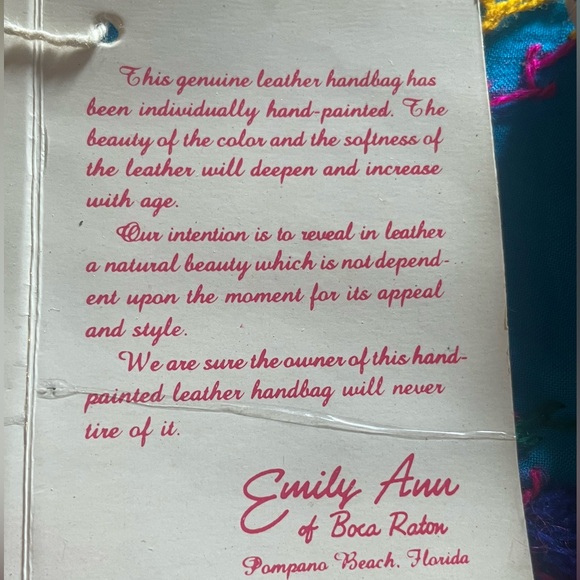 This genuine leather handbag has
been individually hand-painted. The
beauty of the color and the softness of
the leather will deepen and increase
with age.
Our intention is to reveal in leather
a natural beauty which is not depend-
ent upon the moment for its appeal
and style.
We are sure the owner of this hand-
painted leather handbag will never
tire of it.
Emily Ann
of Boca Raton
Pompano Beach, Florida